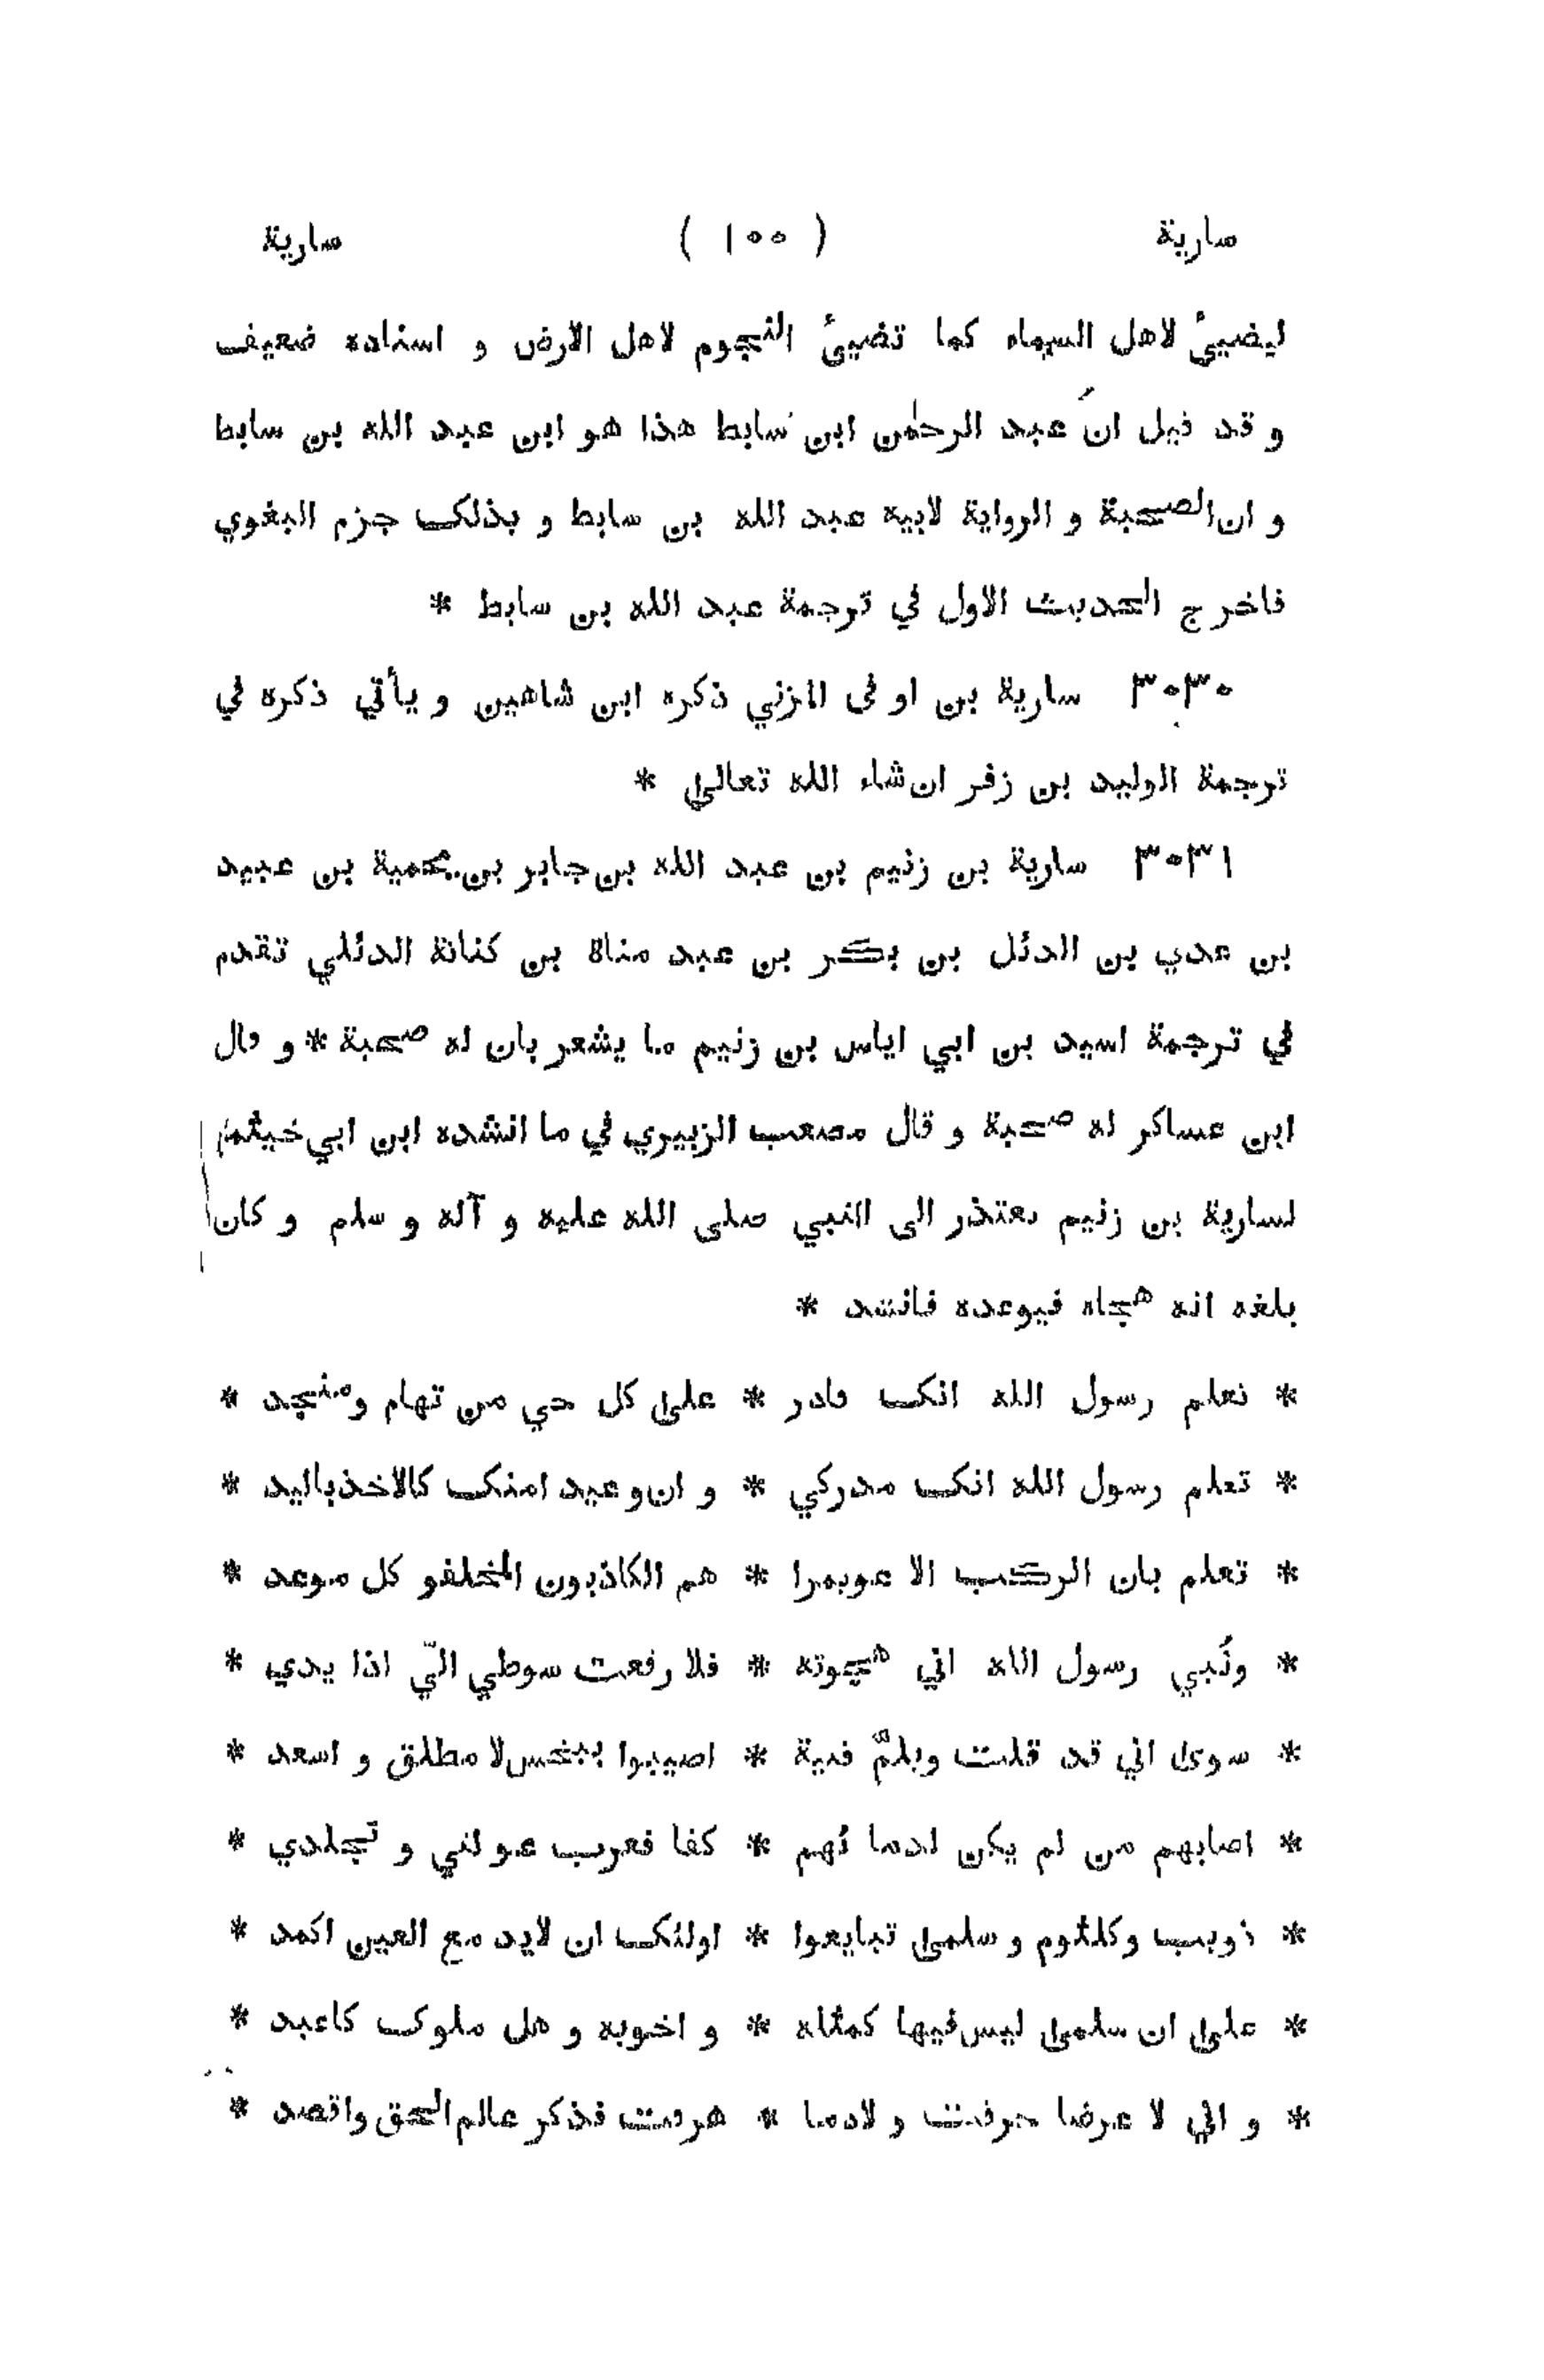 سارية ( ١٠٠ ) سارية
ليضيئ لاهل السماء كما تضيئ النجوم لاهل الارض و اسناده ضعيف
و قد قيل ان عبد الرحمٰن ابن سابط هذا هو ابن عبد الله بن سابط
و ان الصحبة و الرواية لابيه عبد الله بن سابط و بذلك جزم البغوي
فاخرج الحديث الاول في ترجمة عبد الله بن سابط *
٣٠٣٠ سارية بن اوفى المزني ذكره ابن شاهين و يأتي ذكره في
ترجمة الوليد بن زفر ان شاء الله تعالى *
٣٠٣١ سارية بن زنيم بن عبد الله بن جابر بن محمية بن عبيد
بن عدي بن الدئل بن بكر بن عبد مناة بن كنانة الدئلي تقدم
في ترجمة اسيد بن ابي اياس بن زنيم ما يشعر بان له صحبة * و قال
ابن عساكر له صحبة و قال مصعب الزبيري في ما انشده ابن ابي خيثمة
لسارية بن زنيم يعتذر الى النبي صلى الله عليه و آله و سلم و كان
بلغه انه هجاه فيوعده فانشد *
* تعلم رسول الله انك قادر * على كل حي من تهام ومنجد *
* تعلم رسول الله انك مدركي * و ان وعيد امنك كالاخذ باليد *
* تعلم بان الركب الا عويمرا * هم الكاذبون المخلفو كل موعد *
* ونُبي رسول الله اني هجوته * فلا رفعت سوطي اليّ اذا يدي *
* سوى اني قد قلت ويلمّ فتية * اصيبوا بنحس لا مطلق و اسعد *
* اصابهم من لم يكن لدمائهم * كفا فعرب عولتي و تجلدي *
* ذويب و كلثوم و سلمى تبايعوا * اولئك ان لايد مع العين اكمد *
* على ان سلمى ليس فيها كمثله * و اخوبه و هل ملوك كاعبد *
* و اني لا عرضا حرفت و لادما * هرقت فذكر عالم الحق واقصد *